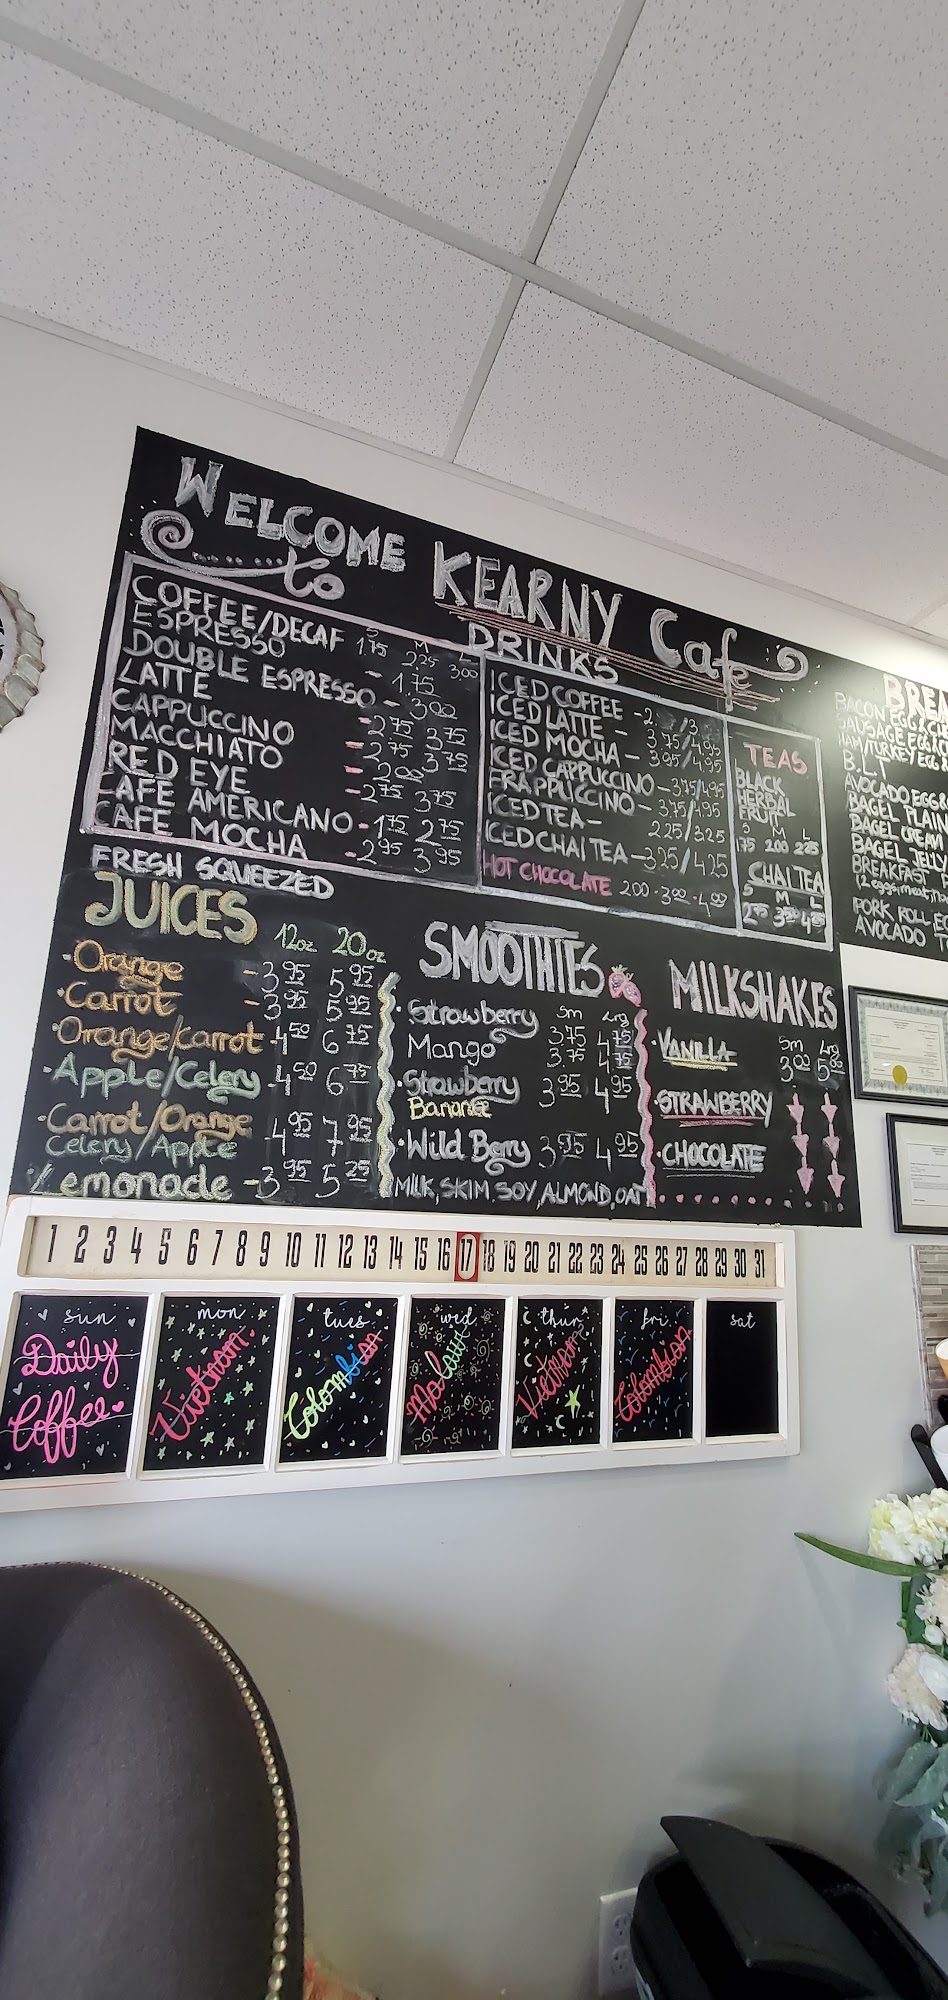 WELCOME
to
KEARNY Cafe
DRINKS
S M L
COFFEE/DECAF 1.75 2.25 3.00
ESPRESSO - 1.75
DOUBLE ESPRESSO - 3.00
LATTE - 2.75 3.75
CAPPUCCINO - 2.75 3.75
MACCHIATO - 2.00
RED EYE - 2.75 3.75
CAFE AMERICANO - 1.75 2.75
CAFE MOCHA - 2.95 3.95
ICED COFFEE -
ICED LATTE - 3.75/4.95
ICED MOCHA - 3.95/4.95
ICED CAPPUCCINO - 3.75/4.95
FRAPPUCCINO - 3.75/4.95
ICED TEA - 2.25/3.25
ICED CHAI TEA - 3.25/4.25
HOT CHOCOLATE 2.00 - 3.00 - 4.00
TEAS
BLACK
HERBAL
FRUIT
S M L
1.75 2.00 2.25
CHAI TEA
S M L
FRESH SQUEEZED
JUICES 12oz 20oz
Orange - 3.95 5.95
Carrot - 3.95 5.95
Orange/carrot - 4.50 6.75
Apple/Celery - 4.50 6.75
Carrot/Orange
Celery/Apple - 4.95 7.95
Lemonade - 3.95 5.25
SMOOTHIES
Sm Lrg
Strawberry 3.75 4.75
Mango 3.75 4.75
Strawberry
Banana 3.95 4.95
Wild Berry 3.95 4.95
MILK, SKIM, SOY, ALMOND, OAT
MILKSHAKES
Sm Lrg
VANILLA 3.00 5.00
STRAWBERRY
CHOCOLATE
BREA
BACON EGG &
SAUSAGE EGG
HAM/TURKEY EGG &
B.L.T
AVOCADO EGG
BAGEL PLAIN
BAGEL CREAM
BAGEL JELLY
BREAKFAST
(2 eggs, meat,
PORK ROLL E
AVOCADO T
1 2 3 4 5 6 7 8 9 10 11 12 13 14 15 16 17 18 19 20 21 22 23 24 25 26 27 28 29 30 31
sun mon tues wed thur fri sat
Daily
Coffee
Vietnam
Colombian
Malawi
Vietnam
Colombian